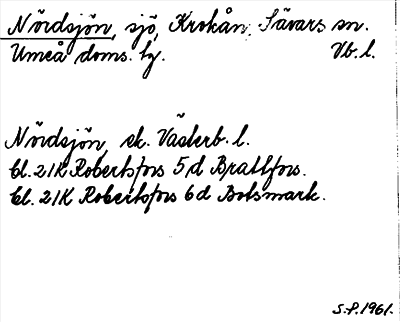 Nördsjön, sjö, Krokån, Sävars sn.
Umeå doms. hg. Vb. l.
Nördsjön, ek. Västerb. l.
bl. 21K Robertsfors 5d Brattfors.
bl. 21K Robertsfors 6d Botsmark.
S.P. 1961.